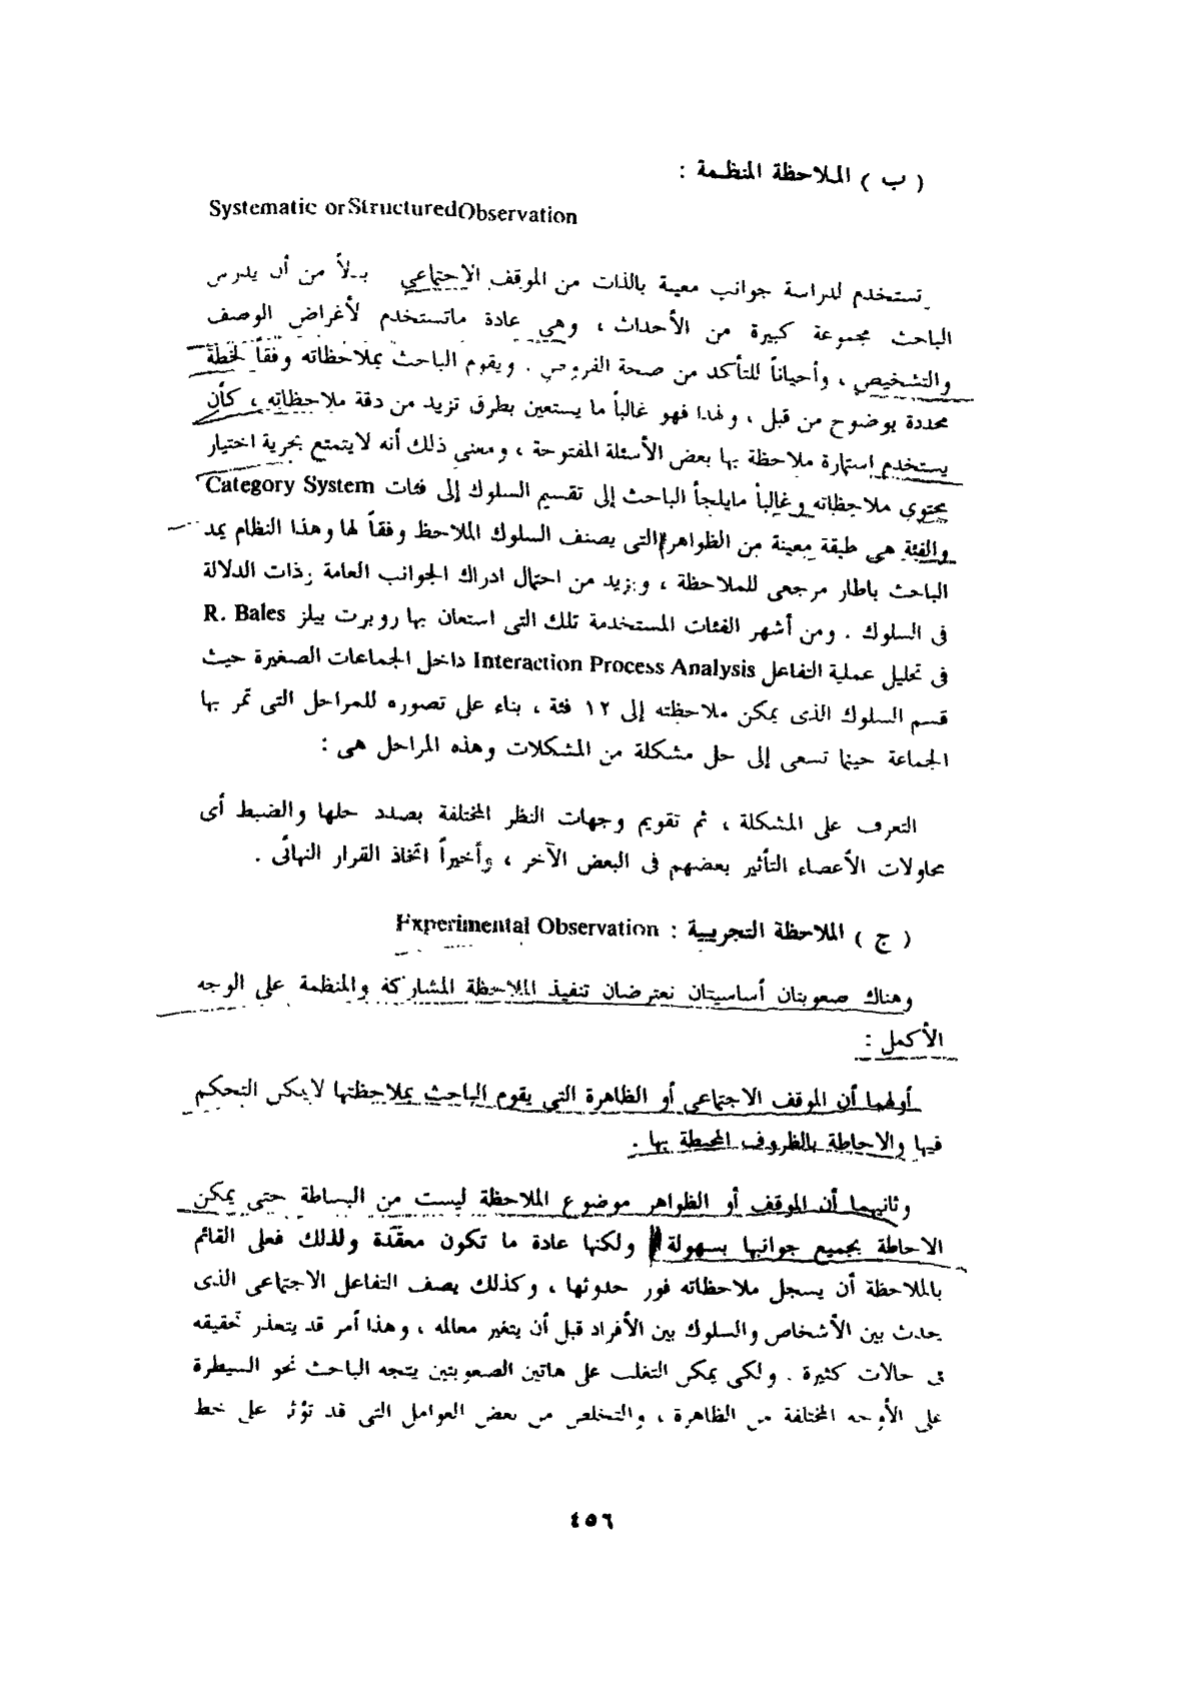 ( ب ) الملاحظة المنظمة :
Systematic or Structured Observation
تستخدم لدراسة جوانب معينة بالذات من الموقف الاجتماعي بدلاً من أن يدرس
الباحث مجموعة كبيرة من الأحداث ، وهي عادة ماتستخدم لأغراض الوصف
والتشخيص ، وأحياناً للتأكد من صحة الفروض . ويقوم الباحث بملاحظاته وفقاً لخطة
محددة بوضوح من قبل ، ولهذا فهو غالباً ما يستعين بطرق تزيد من دقة ملاحظاته ، كأن
يستخدم استمارة ملاحظة بها بعض الأسئلة المفتوحة ، ومعنى ذلك أنه لايتمتع بحرية اختيار
محتوي ملاحظاته وغالباً مايلجأ الباحث إلى تقسيم السلوك إلى فئات Category System
والفئة هي طبقة معينة من الظواهر التى يصنف السلوك الملاحظ وفقاً لها وهذا النظام يمد
الباحث باطار مرجعى للملاحظة ، ويزيد من احتمال ادراك الجوانب العامة ذات الدلالة
فى السلوك . ومن أشهر الفئات المستخدمة تلك التى استعان بها روبرت بيلز R. Bales
فى تحليل عملية التفاعل Interaction Process Analysis داخل الجماعات الصغيرة حيث
قسم السلوك الذى يمكن ملاحظته إلى ١٢ فئة ، بناء على تصوره للمراحل التى تمر بها
الجماعة حينما تسعى إلى حل مشكلة من المشكلات وهذه المراحل هى :
التعرف على المشكلة ، ثم تقويم وجهات النظر المختلفة بصدد حلها والضبط أى
محاولات الأعضاء التأثير بعضهم فى البعض الآخر ، وأخيراً اتخاذ القرار النهائى .
( ج ) الملاحظة التجريبية : Experimental Observation
وهناك صعوبتان أساسيتان تعترضان تنفيذ الملاحظة المشاركة والمنظمة على الوجه
الأكمل :
أولهما أن الموقف الاجتماعى أو الظاهرة التي يقوم الباحث بملاحظتها لايمكن التحكم
فيها والاحاطة بالظروف المحيطة بها .
وثانيهما أن الموقف أو الظواهر موضوع الملاحظة ليست من البساطة حتى يمكن
الاحاطة بجميع جوانبها بسهولة ولكنها عادة ما تكون معقدة ولذلك فعلى القائم
بالملاحظة أن يسجل ملاحظاته فور حدوثها ، وكذلك يصف التفاعل الاجتماعى الذى
يحدث بين الأشخاص والسلوك بين الأفراد قبل أن يتغير معالمه ، وهذا أمر قد يتعذر تحقيقه
فى حالات كثيرة . ولكى يمكن التغلب على هاتين الصعوبتين يتجه الباحث نحو السيطرة
على الأوجه المختلفة من الظاهرة ، والتخلص من بعض العوامل التى قد تؤثر على خط
٤٥٦